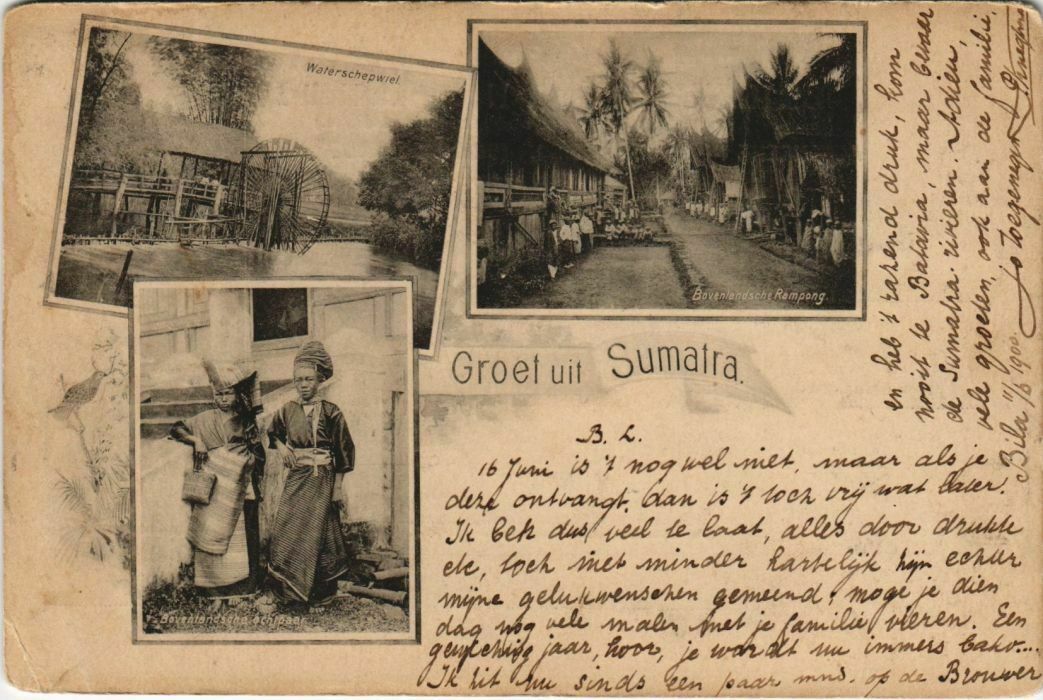 Waterschepwiel.
Bovenlandsche Kampong.
Bovenlandsche echtpaar
Groet uit Sumatra.
B. L.
16 Juni is 't nog wel niet, maar als je
deze ontvangt, dan is 't toch vrij wat later.
Ik ben dus veel te laat, alles door drukte
etc, toch niet minder hartelijk zijn echter
mijne gelukwenschen gemeend; moge je dien
dag nog vele malen met je familie vieren. Een
gewichtig jaar, hoor, je wordt nu immers
Ik zit nu sinds een paar mnd. op de Brouwer
en heb 't razend druk, kom
nooit te Batavia, maar bevaar
de Sumatra rivieren. Adieu,
vele groeten, ook aan de familie.
Bila 11/6 1900. Jo toegenegen